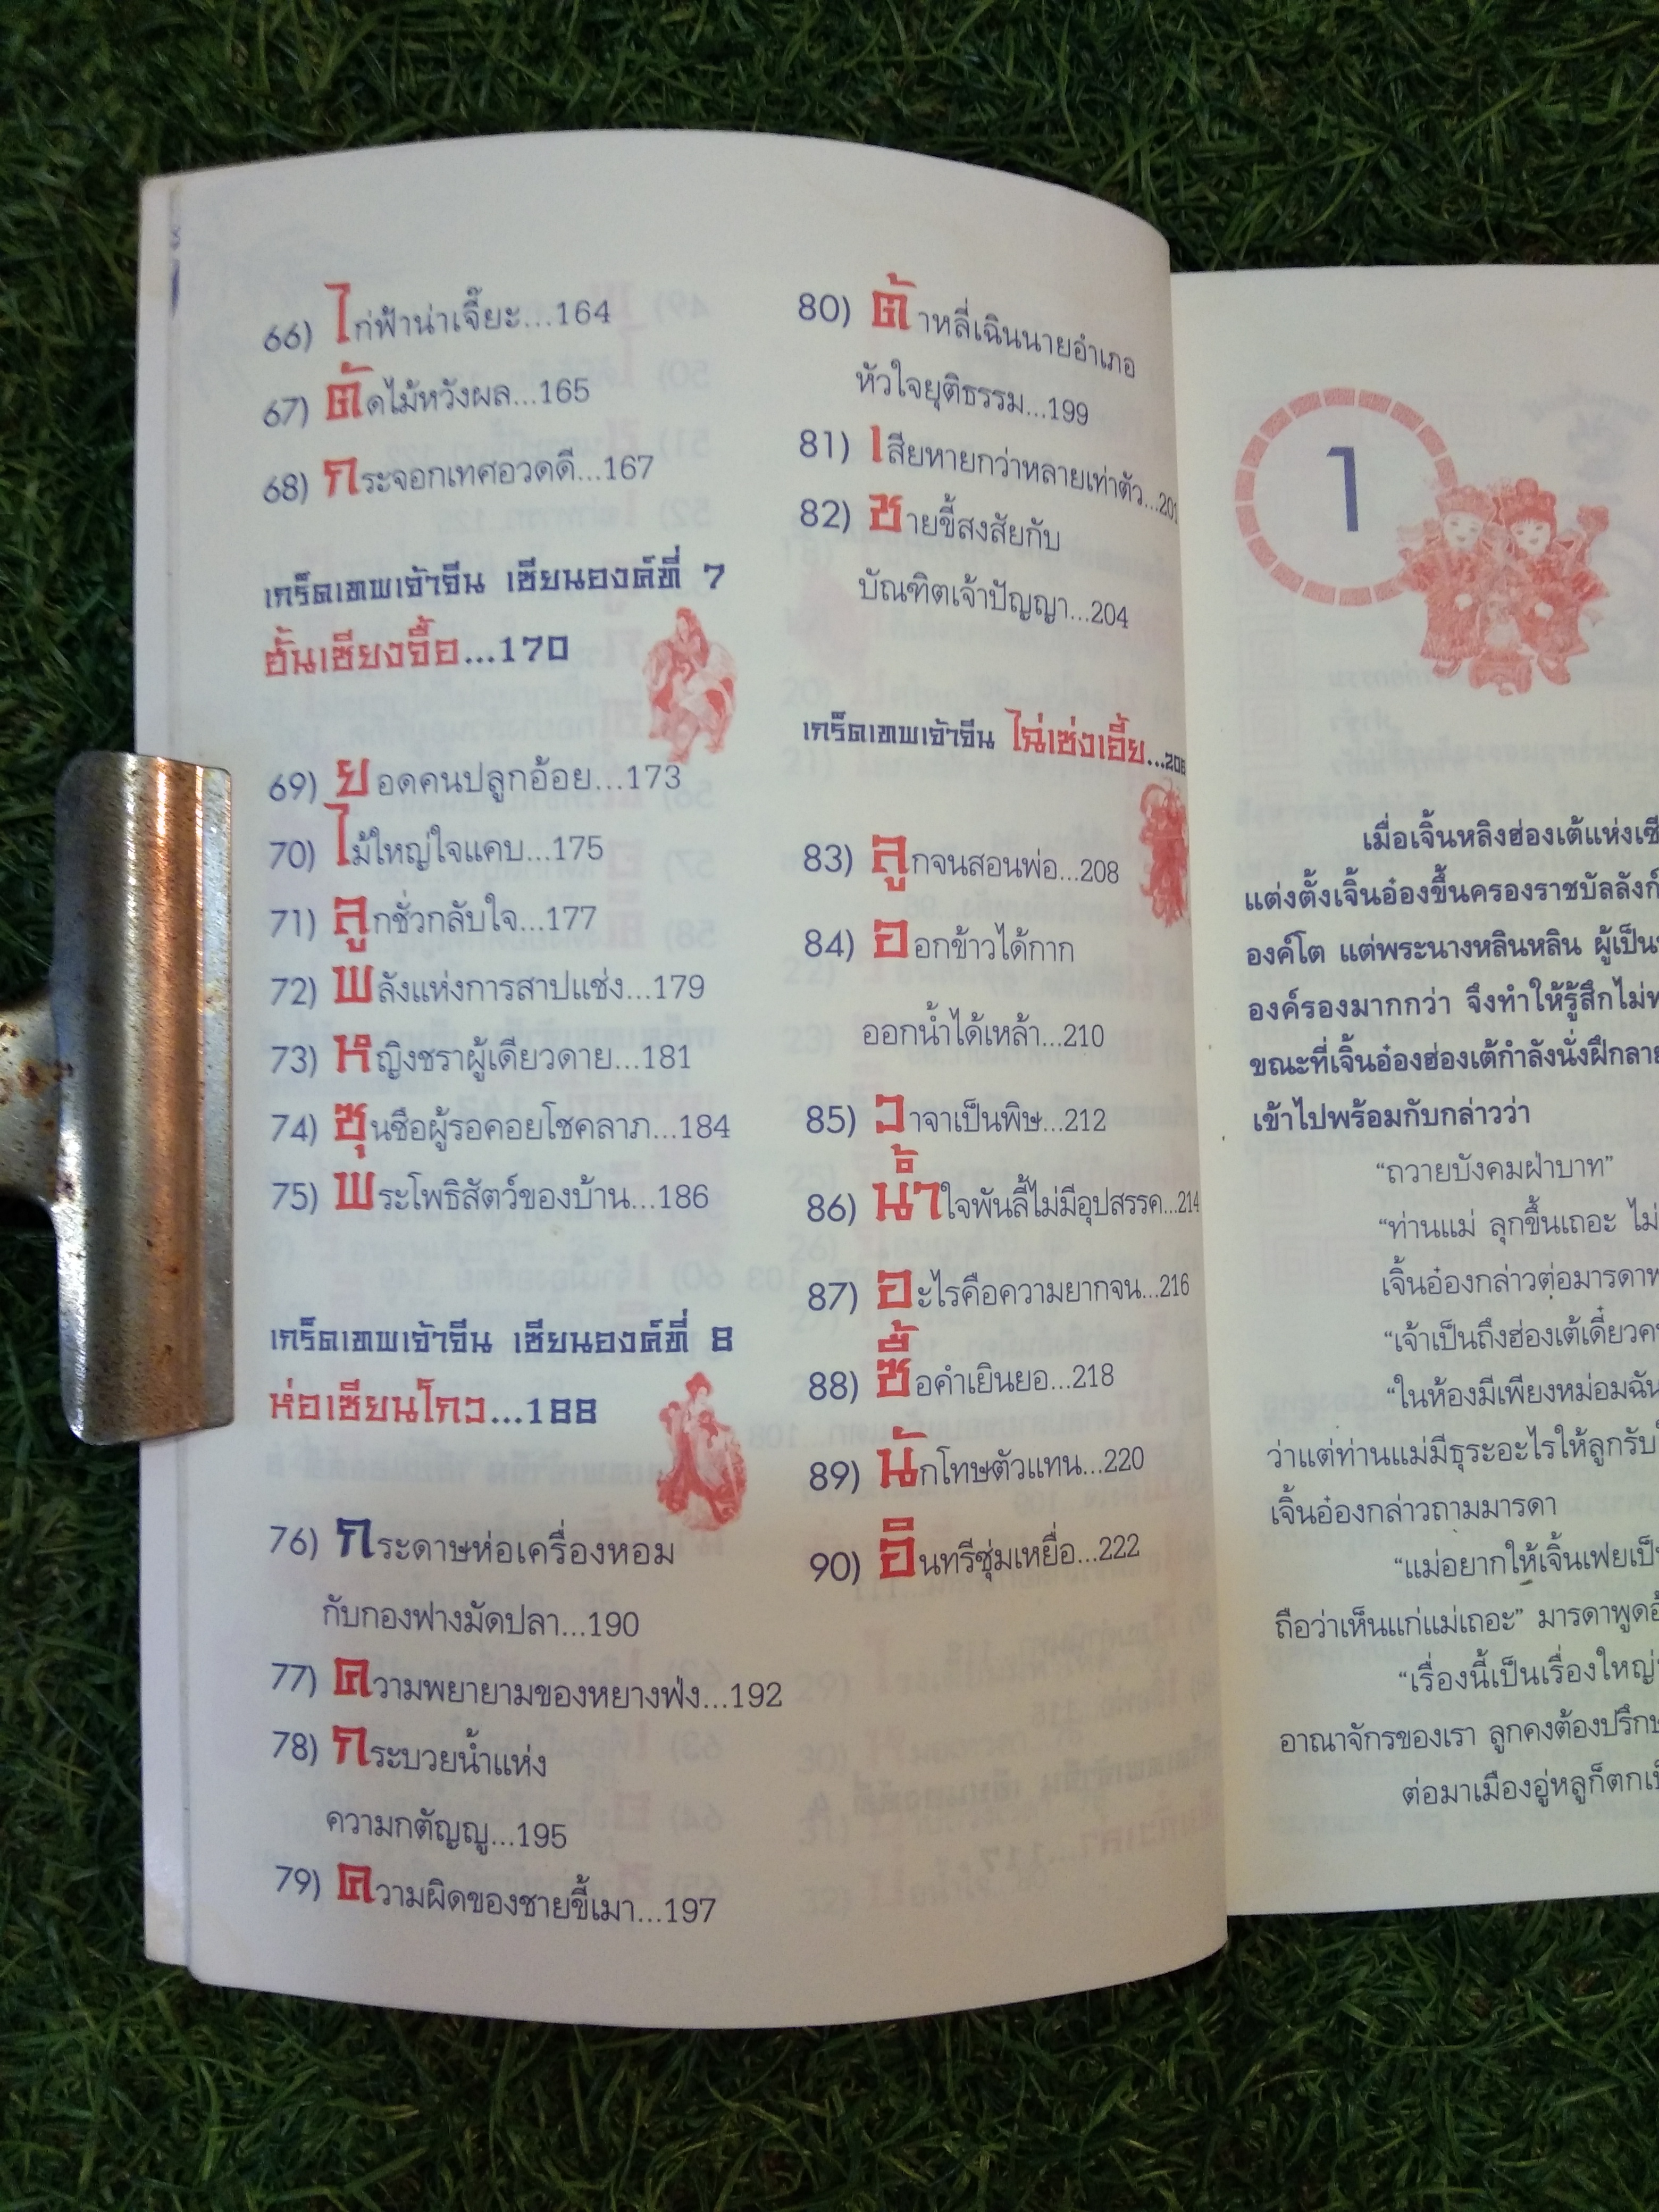 66) ไก่ฟ้าน่าเจี๊ยะ...164
67) ตัดไม้หวังผล...165
68) กระจอกเทศอวดดี...167
เกร็ดเทพเจ้าจีน เซียนองค์ที่ 7
ฮั้นเซียงจื้อ...170
69) ยอดคนปลูกอ้อย...173
70) ไม้ใหญ่ใจแคบ...175
71) ลูกชั่วกลับใจ...177
72) พลังแห่งการสาปแช่ง...179
73) หญิงชราผู้เดียวดาย...181
74) ซุนซือผู้รอคอยโชคลาภ...184
75) พระโพธิสัตว์ของบ้าน...186
เกร็ดเทพเจ้าจีน เซียนองค์ที่ 8
ห่อเซียนโกว...188
76) กระดาษห่อเครื่องหอม
กับกองฟางมัดปลา...190
77) ความพยายามของหยางฟง...192
78) กระบวยน้ำแห่ง
ความกตัญญู...195
79) ความผิดของชายขี้เมา...197
80) ต้าหลี่เฉินนายอำเภอ
หัวใจยุติธรรม...199
81) เสียหายกว่าหลายเท่าตัว...201
82) ชายขี้สงสัยกับ
บัณฑิตเจ้าปัญญา...204
เกร็ดเทพเจ้าจีน ไฉ่เซ่งเอี้ย...206
83) ลูกจนสอนพ่อ...208
84) ออกข้าวได้กาก
ออกน้ำได้เหล้า...210
85) วาจาเป็นพิษ...212
86) น้ำใจพันลี้ไม่มีอุปสรรค...214
87) อะไรคือความยากจน...216
88) ซื้อคำเยินยอ...218
89) นักโทษตัวแทน...220
90) อินทรีซุ่มเหยื่อ...222
1
เมื่อเจิ้นหลิงฮ่องเต้แห่งเซี
แต่งตั้งเจิ้นอ๋องขึ้นครองราชบัลลังก์
องค์โต แต่พระนางหลินหลิน ผู้เป็น
องค์รองมากกว่า จึงทำให้รู้สึกไม่
ขณะที่เจิ้นอ๋องฮ่องเต้กำลังนั่งฝึกลาย
เข้าไปพร้อมกับกล่าวว่า
“ถวายบังคมฝ่าบาท”
“ท่านแม่ ลุกขึ้นเถอะ ไม่
เจิ้นอ๋องกล่าวต่อมารดา
“เจ้าเป็นถึงฮ่องเต้เดี๋ยวค
“ในห้องมีเพียงหม่อมฉัน
ว่าแต่ท่านแม่มีธุระอะไรให้ลูกรับ
เจิ้นอ๋องกล่าวถามมารดา
“แม่อยากให้เจิ้นเฟยเป็น
ถือว่าเห็นแก่แม่เถอะ” มารดาพูดอ้
“เรื่องนี้เป็นเรื่องใหญ่
อาณาจักรของเรา ลูกคงต้องปรึก
ต่อมาเมืองอู่หลูก็ตกเป็